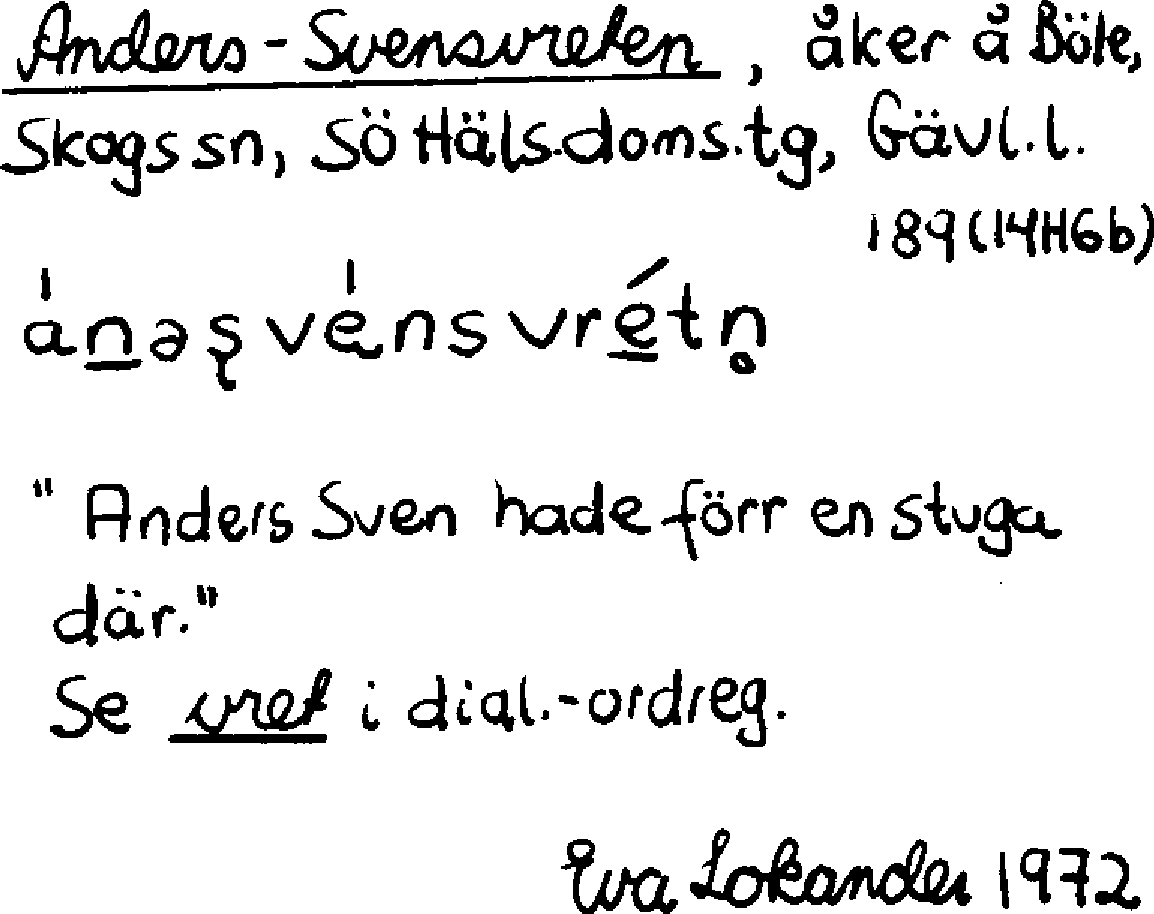 Anders-Svensvreten, åker å Böle,
Skogs sn, Sö Häls.doms.tg, Gävl.l.
189 (14H6b)
"Anders Sven hade förr en stuga
där."
Se vret i dial.-ordreg.
Eva Lokander 1972